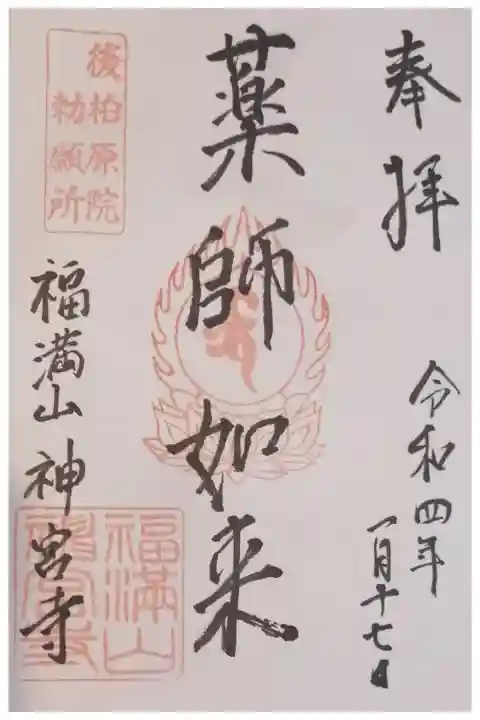 奉拝
令和四年
一月十七日
薬師如来
後柏原院
勅願所
福満山神宮寺
福滿山
神宮寺